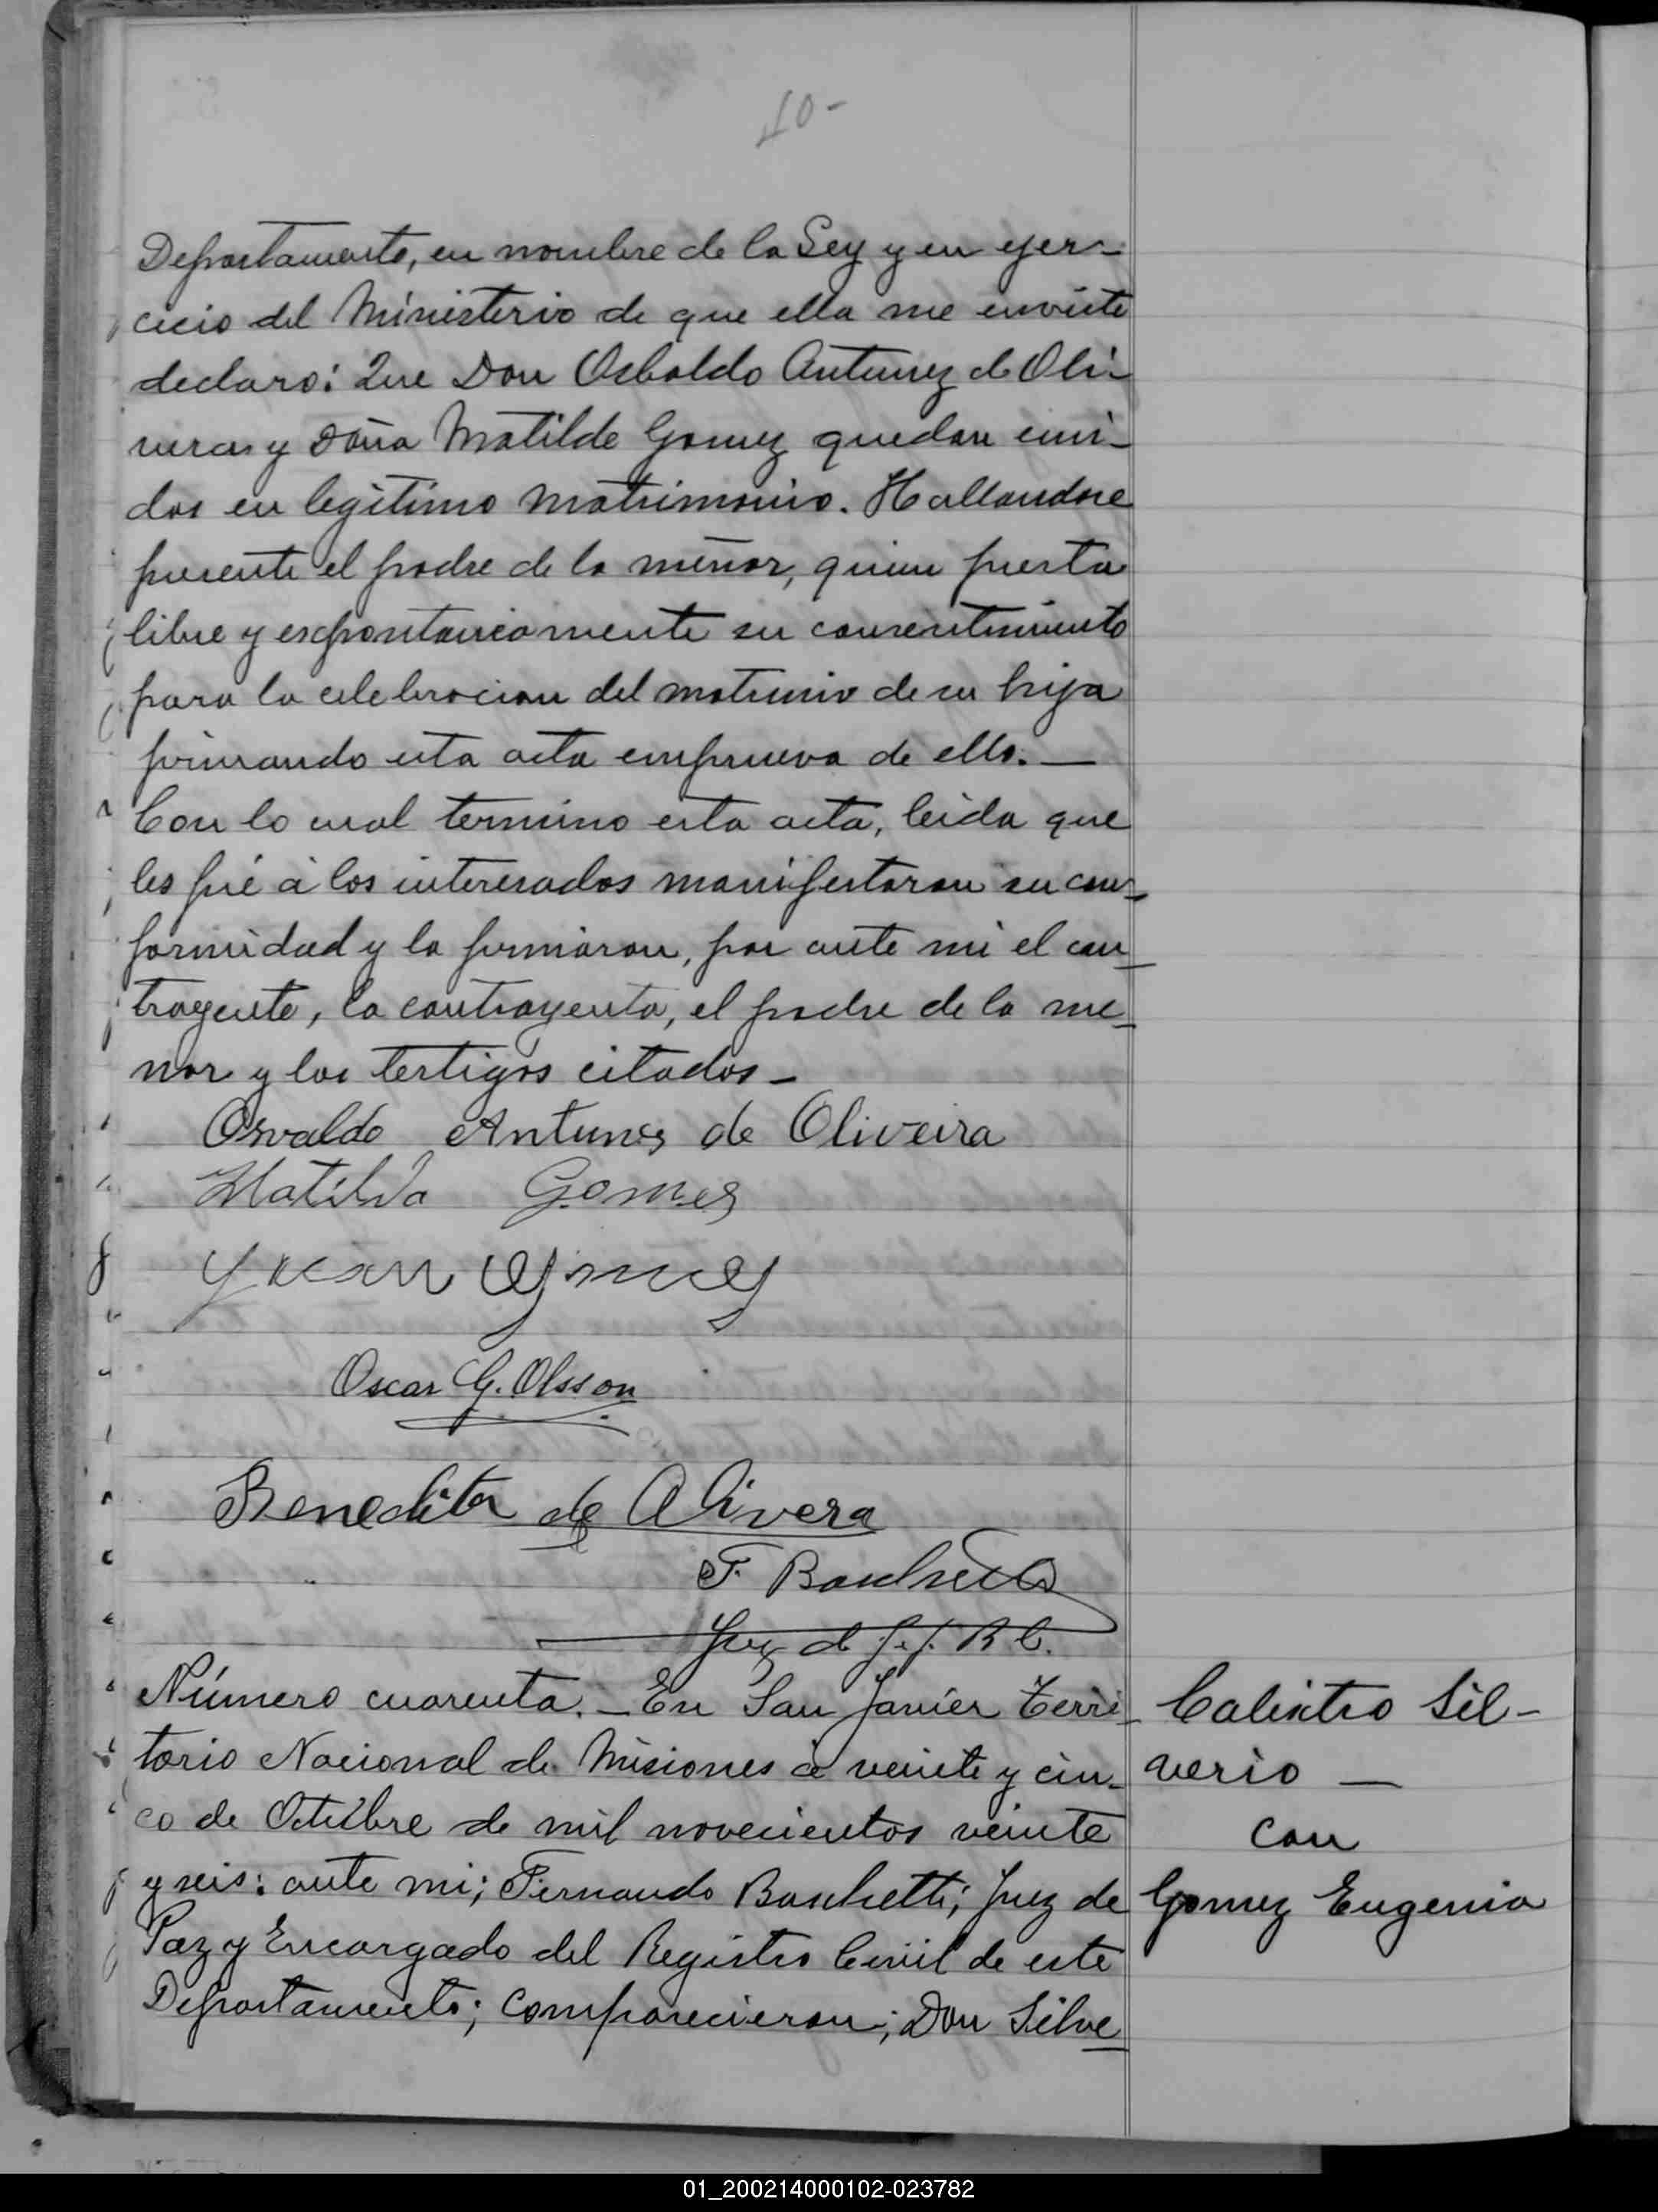 40-
Departamento, en nombre de la Ley y en ejer-
cicio del Ministerio de que ella me enviste
declaro: Que Don Osbaldo Antunez de Oli-
veras y Doña Matilde Gomez quedan uni-
dos en legitimo matrimonio. Hallandose
presente el padre de la menor, quien presta
libre y espontaneamente su consentimiento
para la celebracion del matrimio de su hija
firmando esta acta enprueva de ello. —
Con lo cual termino esta acta, leida que
les fué á los interesados manifestaron su con-
formidad y la firmaron, por ante mi el con-
trayente, la contrayenta, el padre de la me-
nor y los testigos citados -
Osvaldo Antunes de Oliveira
Matilda Gomes
Juan Gomez
Oscar G. Olsson
Benedita de Olivera
F. Boschetti
Juez de P. R C.
Número cuarenta. — En San Javier Terri-
torio Nacional de Misiones á veinte y cin-
co de Octubre de mil novecientos veinte
y seis: ante mi; Fernando Boschetti; Juez de
Paz y Encargado del Registro Civil de este
Departamento; comparecieron; Don Silve
Calixtro Sil-
verio —
con
Gomez Eugenia
01_200214000102-023782